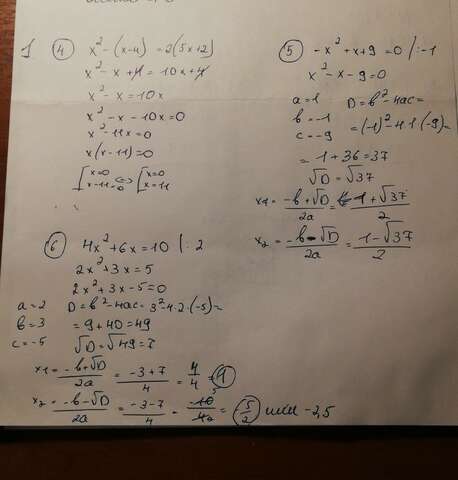 1 ④ x² - (x-4) = 2(5x+2)
x² - x + 4 = 10x + 4
x² - x = 10x
x² - x - 10x = 0
x² - 11x = 0
x(x-11) = 0
[x=0 x-11=0 <=> [x=0 x=11
⑤ -x² + x + 9 = 0 /:-1
x² - x - 9 = 0
a=1 D=b²-4ac=
b=-1 =(-1)²-4·1·(-9)=
c=-9
= 1+36=37
√D = √37
x1 = (-b+√D)/2a = (1+√37)/2
x2 = (-b-√D)/2a = (1-√37)/2
⑥ 4x² + 6x = 10 |:2
2x² + 3x = 5
2x² + 3x - 5 = 0
a=2 D=b²-4ac=3²-4·2·(-5)=
b=3 =9+40=49
c=-5 √D=√49=7
x1 = (-b+√D)/2a = (-3+7)/4 = 4/4 = 1
x2 = (-b-√D)/2a = (-3-7)/4 = -10/4 = -5/2 или -2,5